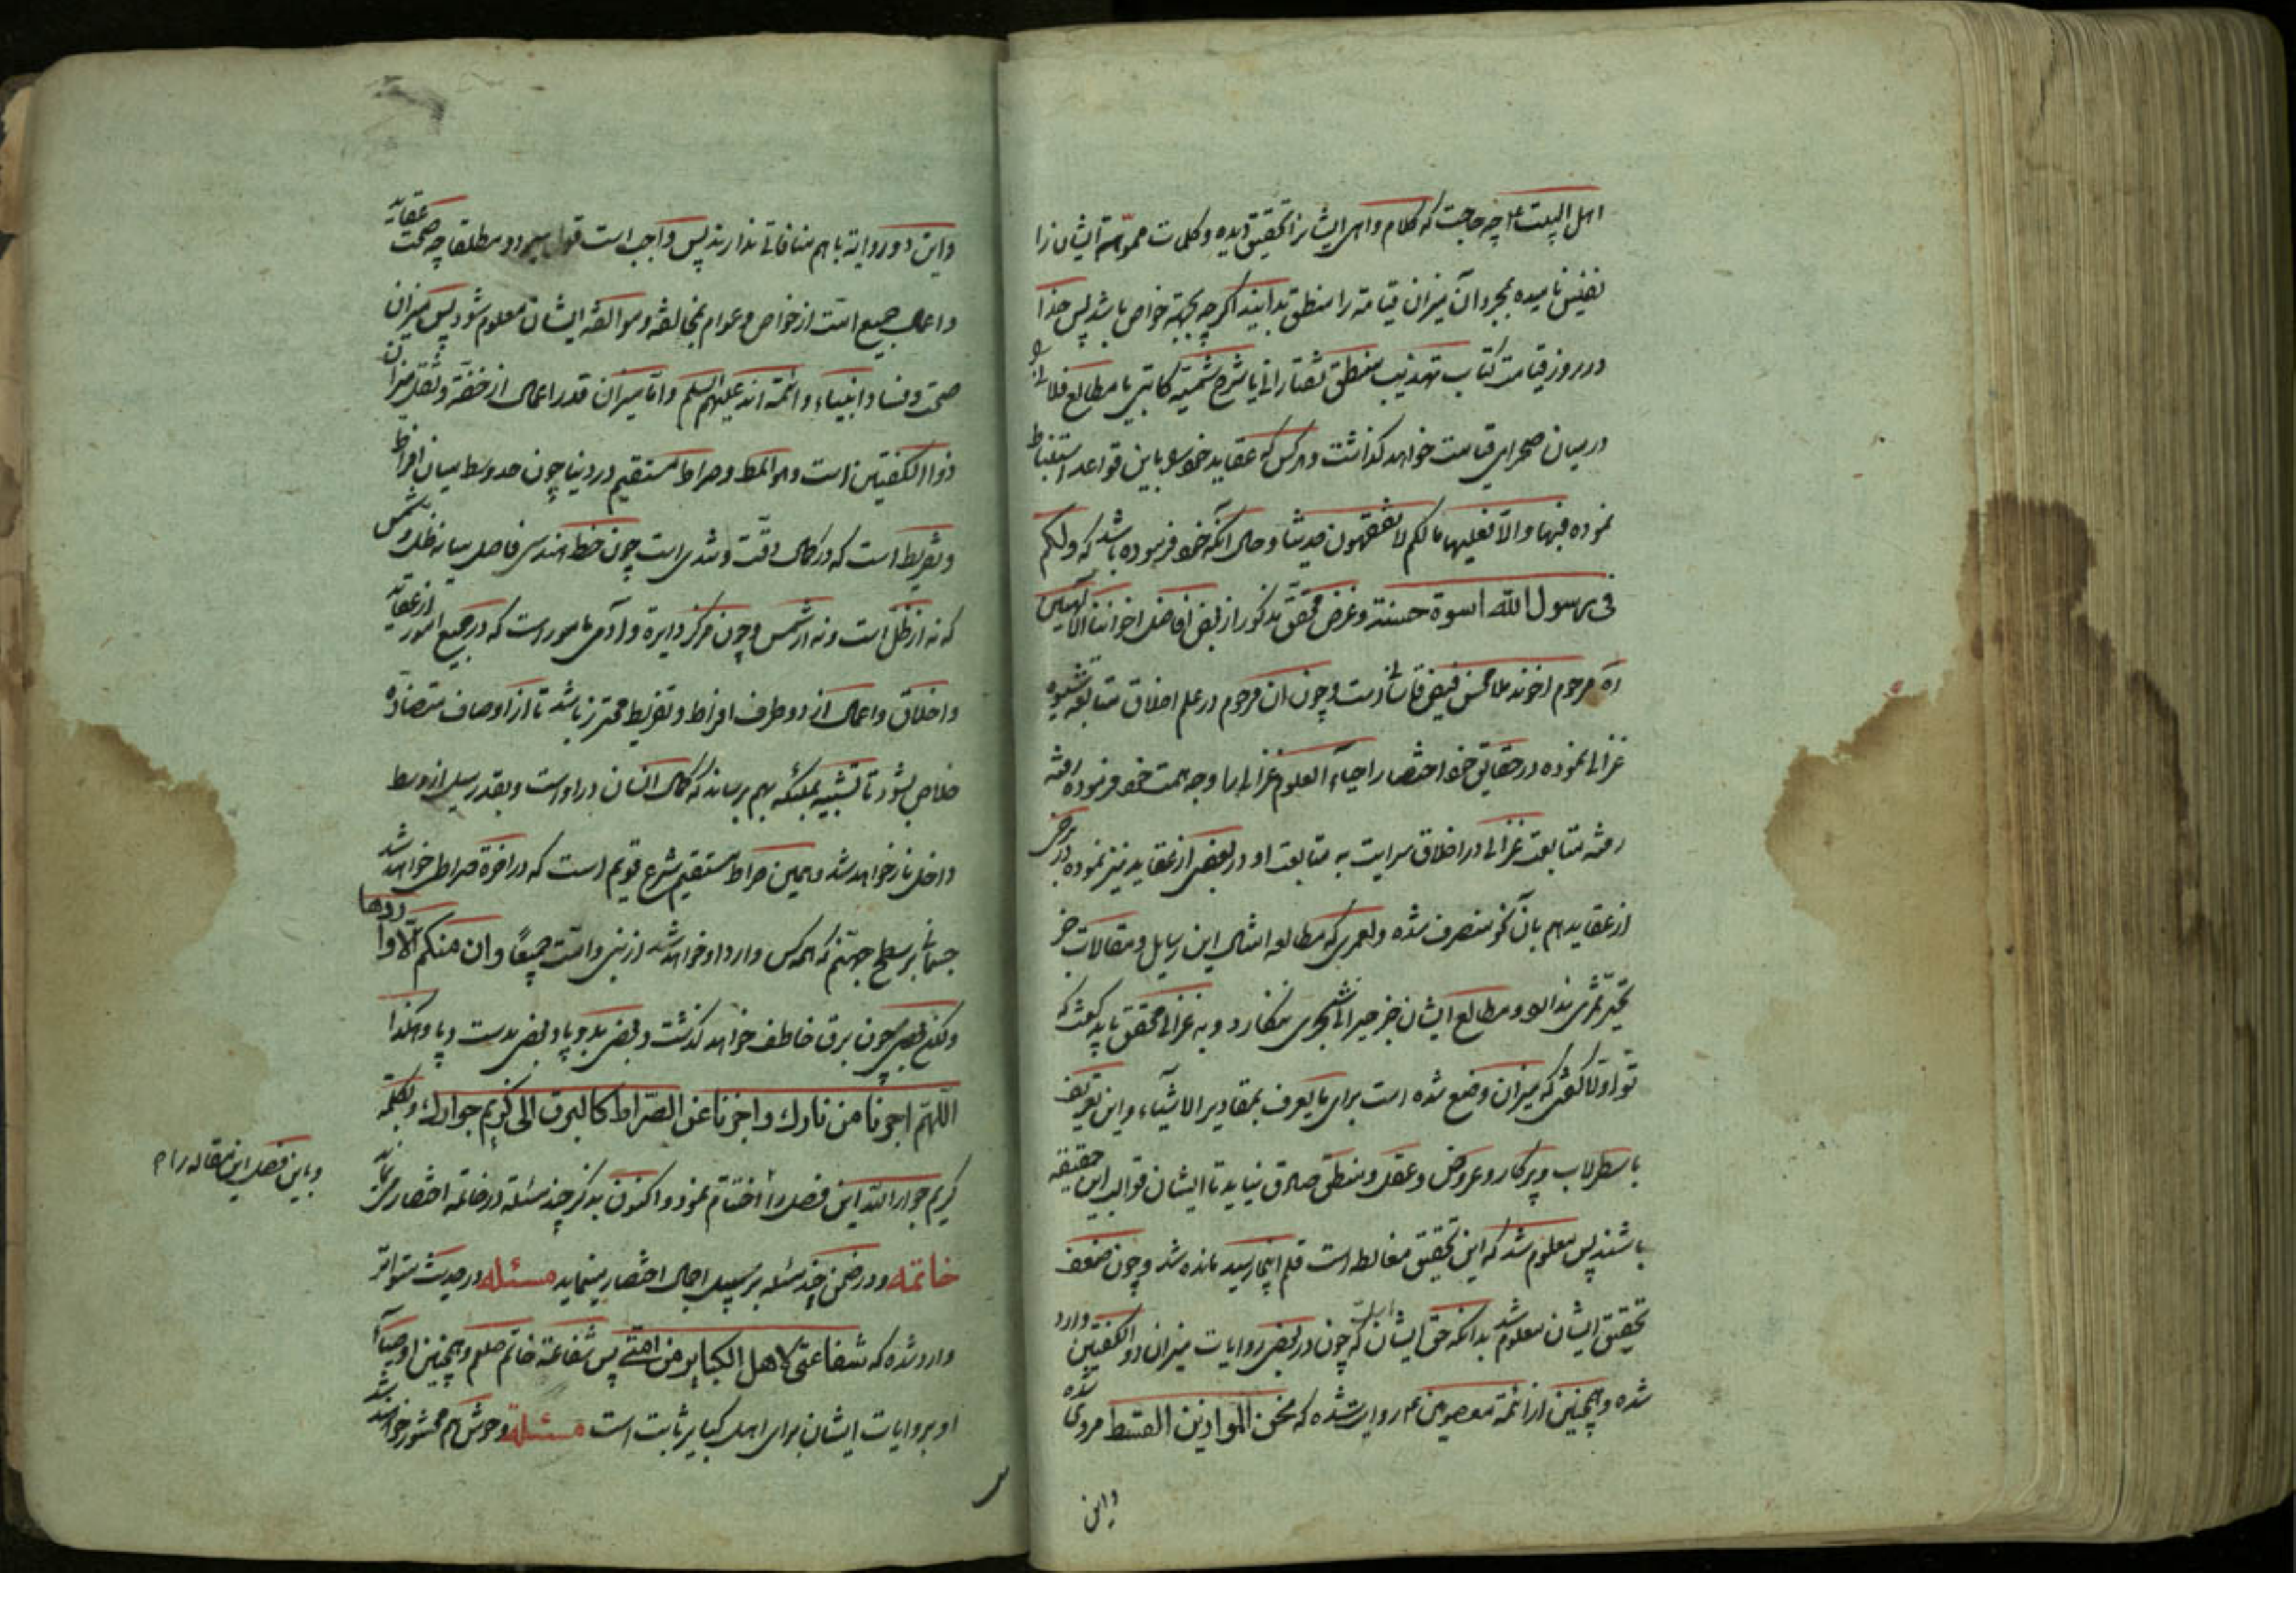 اهل البیت ع چه حاجت که کلام واهی ایشانرا تحقیق دیده و کلمات مموّهة ایشان را
نفیس نامیده بمجرد آن میزان قیامة را منطق بدانیند اگر چه بجهة خواص باشد پس خذا
در روز قیامت کتاب تهذیب منطق تفتازانی یا شرح شمسیّه کاتبی یا مطالع فلانرا
در میان صحرای قیامت خواهد گذاشت و هر کس که عقاید خود باین قواعد استنباط
نموده فبها والّا فعلیها مالکم لا تفقهون حدیثا و حال آنکه خود فرموده باشد که ولکم
فی رسول الله اسوة حسنة و غرض محقق مذکور از بعض افاضل اخواننا الالهیین
اه مرحوم اخوند ملا محسن فیض قاسانی است و چون ان مرحوم در علم اخلاق متابعة شیوه
غزالی نموده در حقایق خود اختصار احیاء العلوم غزالی را وجه همت خود فرموده رفته
رفته متابعت غزالی در اخلاق سرایت به متابعت او در بعضی از عقاید نیز نموده در برخی
از عقاید هم بآن نحو منصرف شده ولعمری که مطالعه امثال این رسایل و مقالات جز
تحیر ثمری ندارد و مطالع ایشان جز حیرانی شجری نمیکارد و به غزالی محقق باید گفت که
تو اولا گفتی که میزان وضع شده است برای ما یعرف بمقادیر الاشیاء و این تعریف
باسطرلاب و پرکار و عروض و عقل و منطق صادق نیاید تا ایشان قوالب این حقیقه
باشند پس معلوم شد که این تحقیق مغالطه است قلم اینجا رسید مانده شد و چون ضعف
تحقیق ایشان معلوم شد بدانکه حق ایشان که چون در بعضی روایات میزان ذو الکفتین وارد
شده و همچنین از ائمة معصومین ع روایت شده که نحن الموازین القسط مروی شده
واین
واین دو روایة با هم منافاتی ندارند پس واجب است دو مطلقا چه صحت عقاید
و اعمال جمیع امت از خواص و عوام بمخالفة و موالفة ایشان معلوم شود پس میزان
صحت و فساد انبیاء و ائمة اند علیهم السلم و اما میزان قدر اعمال از خفة و ثقل میزان
ذوا الکفتین است وهو المط و صراط مستقیم در دنیا چون حد وسط میان افراط
و تفریط است که در کمال دقت و شدی است چون خط هندسی فاصل میانه ظل و شمس
که نه از ظل است و نه از شمس و چون مرکز دایرة و آدمی مامور است که در جمیع امور از عقاید
و اخلاق و اعمال از دو طرف افراط و تفریط محترز باشد تا از اوصاف متضادّة
خلاص بشود تا تشبیه بملئکه بهم برساند که کمال انسان در اوست و بقدر میل از وسط
داخل نار خواهد شد و همین صراط مستقیم شرع قویم است که در اخرة صراطی خواهد شد
جسمانی بر سطح جهنم که همه کس وارد او خواهد شد از نبی و امّت جمیعًا وان منکم الّا واردها
ولکن بعضی چون برق خاطف خواهد گذشت و بعضی بدو پا و بعضی بدست و پا و هکذا
اللّهم اجرنا من نارك واجزنا عن الصّراط کالبرق الی کریم جوارك و بکلمة
کریم جوار الله این فصل را اختتام نمود و اکنون بذکر چند مسئلة در خاتمه اختصار می نماید
وباین فصل این مقاله را م
خاتمة و در ضمن چند مسئله بر سبیل اجمال اختصار مینماید مسئله در حدیث متواتر
وارد شده که شفاعتی لاهل الکبایر من امتی پس شفاعة خاتم صلعم و همچنین اوصیاء
او بروایات ایشان برای اهل کبایر ثابت است مسئلة وحوش هم محشور خواهند شد